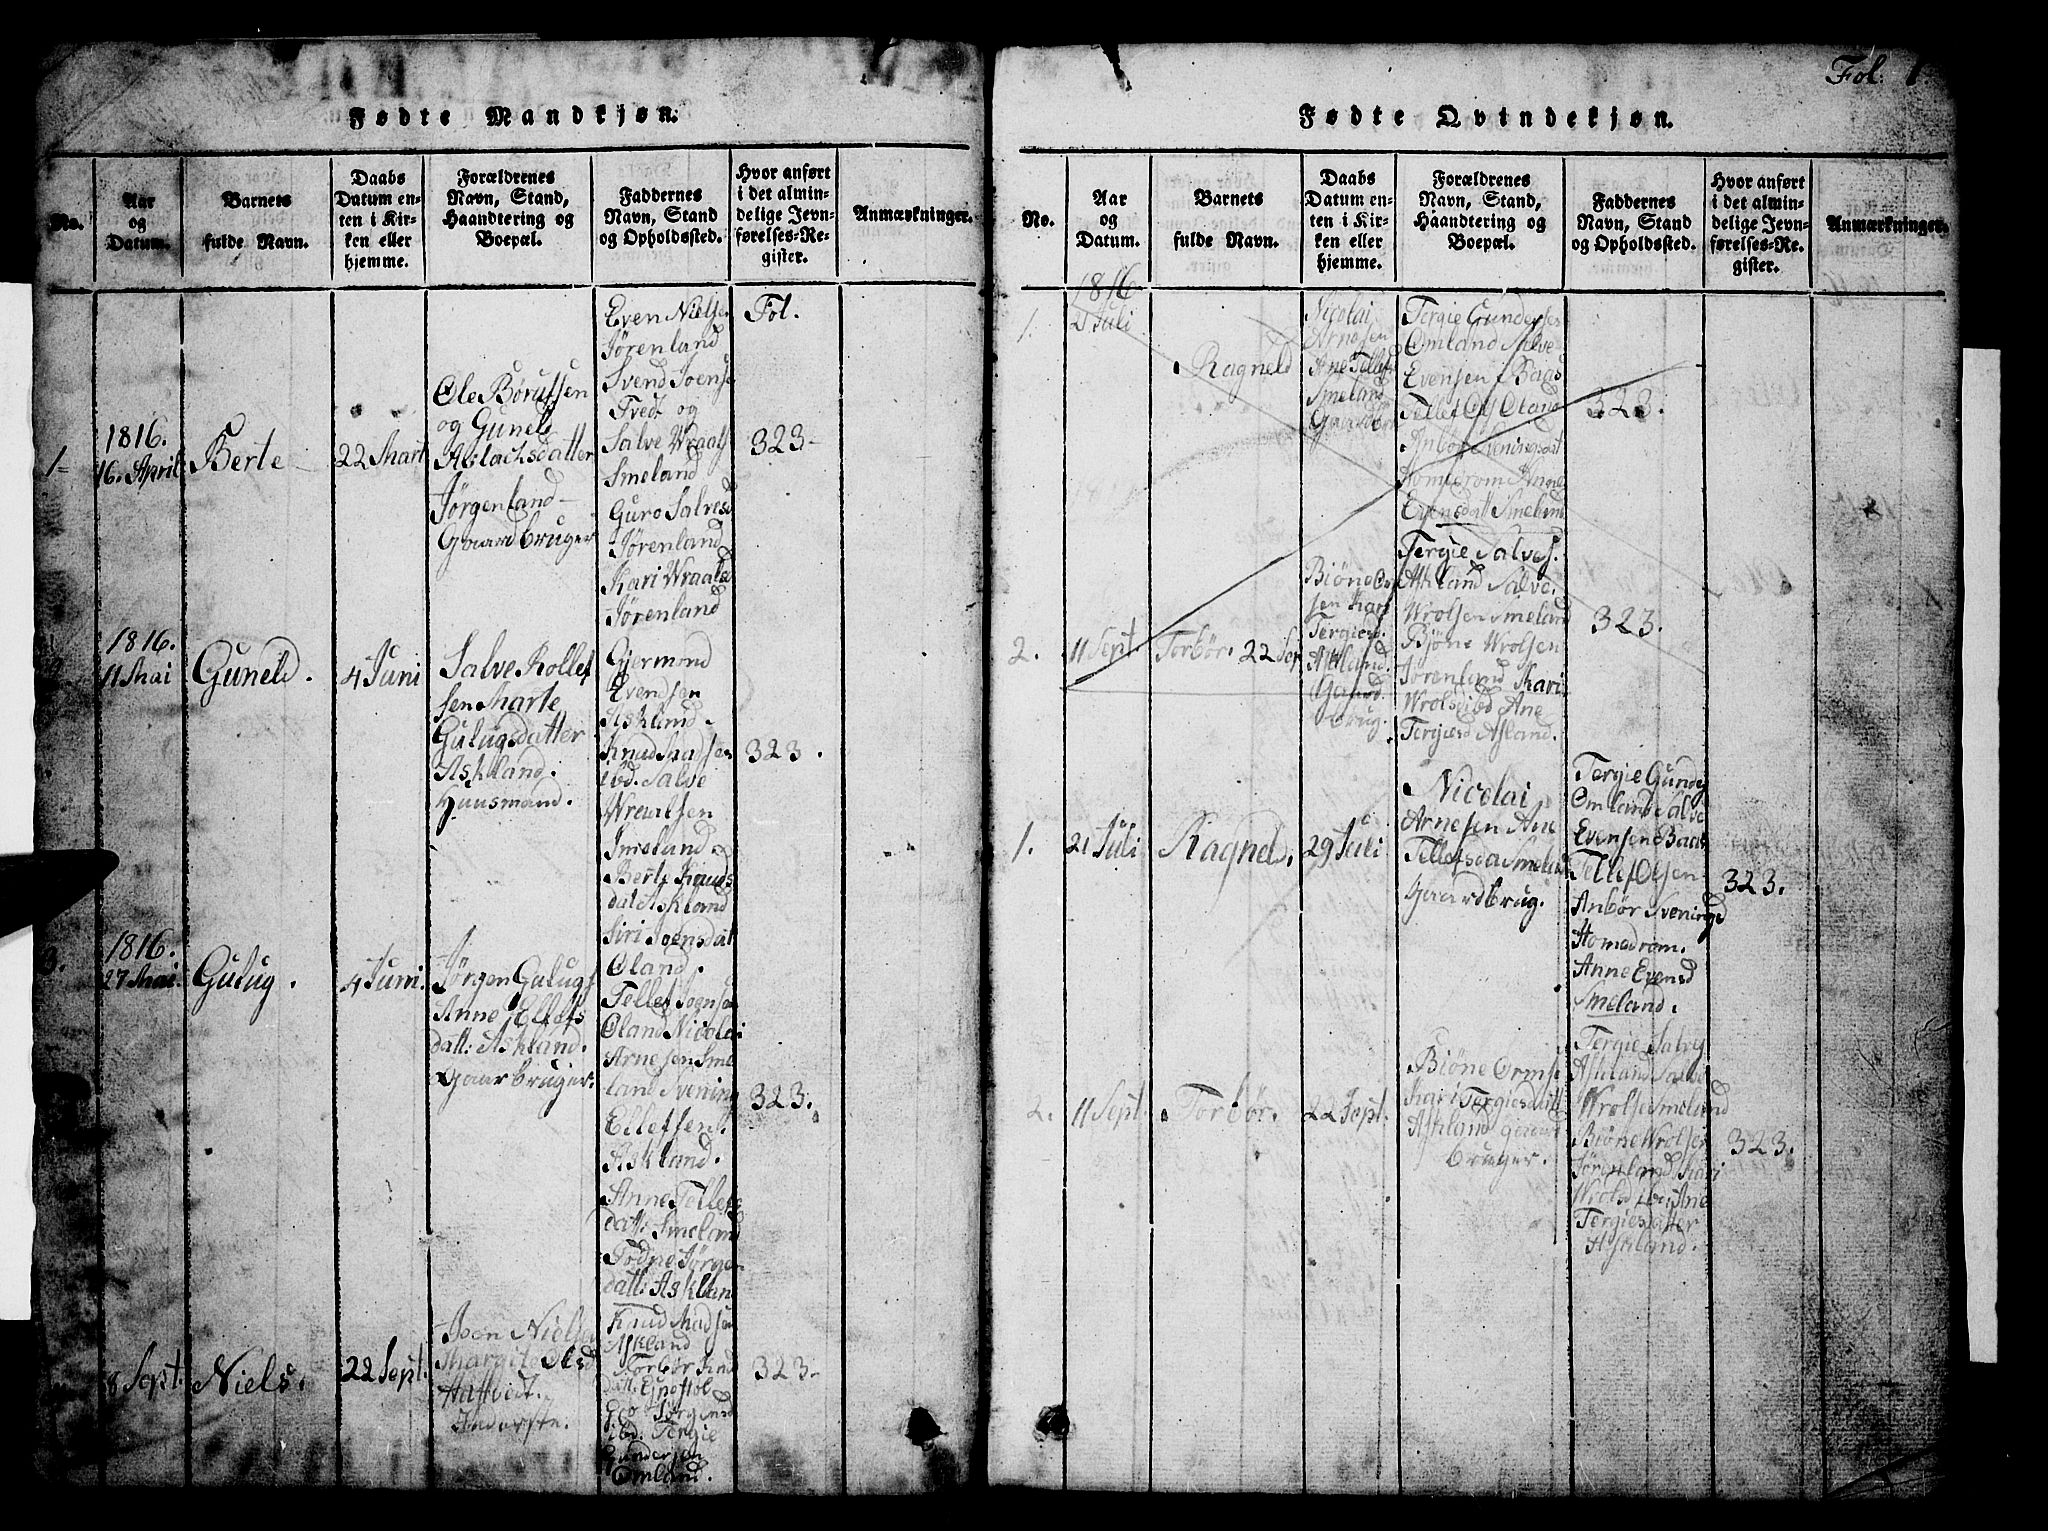 Fol: 1
Fødte Mandkjøn.
No.
Aar
og
Datum.
Barnets
fulde Navn.
Daabs
Datum en-
ten i Kir-
ken eller
hjemme.
Forældrenes
Navn, Stand,
Haandtering og
Boepæl.
Faddernes
Navn, Stand
og Opholdssted.
Hvor anført
i det almin-
delige Jevn-
førelses-Re-
gister.
Anmærkninger.
1-
1816.
16. April
Berte
22 Mart
Ole Børufsen
og Guneld
Aslachsdatter
Jørgenland
Gaardbruger
Even Nielse
Jørenland
Svend Joens
Tvedt og
Salve Wraals
Smeland
Guro Salvesd
Jørenland
Kari Wraalsd
Jørenland
Fol.
323-
1816.
11 Mai
Guneld.
4 Juni
Salve Rollef
sen Marte
Gulugsdatter
Askland.
Huusmand.
Gjermond
Evendsen
Askland.
Knud Madsen
ibd. Salve
Wraalsen
Smeland.
Berte Knuds
dat Askland
Siri Joensdat
Oland.
323.
3.
1816.
27 Mai.
Gulug.
4 Juni.
Jørgen Gulugs
Anne Ellefs
datt: Askland.
Gaarbruger.
Tellef Jognsen
Oland Nicolai
Arnesen Sme
land Svening
Ellefsen
Askland.
Anne Tellefs
datt: Smeland
Todne Jørgen
datt: Askland
323.
8 Sept.
Niels.
22 Sept.
Joen Nielsen
Margit Olsd
Inderste.
Knud Madsen
Askland
Torbør Knud
datt:
Jørgensd
ibd. Tergie
Gundersen
Omland.
323-
Fødte Qvindekjøn.
No.
Aar
og
Datum.
Barnets
fulde Navn.
Daabs
Datum en-
ten i Kir-
ken eller
hjemme.
Forældrenes
Navn, Stand,
Haandtering og
Boepæl.
Faddernes
Navn, Stand
og Opholdssted.
Hvor anført
i det almin-
delige Jevn-
førelses-Re-
gister.
Anmærkninger.
1.
1816
21 Juli
Ragneld
Nicolai
Arnesen
Ane Tellefs
Smeland
Gaardbr
Tergie Gundersen
Omland Salve
Evensen Baas
Tellef Ols Oland
Anbør Sveningsdat
Homdrom Anne
Evensdatt Smeland
323.
2.
11 Sept.
Torbør.
22 Sep
Biøne Or
sen Kari
Tergiesd.
Askland.
Gaard
brug.
Tergie Salves.
Askland Salve
Wrolsen Smeland
Bjøne Wrolsen
Jørenland Kari
Wrols ibd Ane
Tergiesd Asland.
323.
1.
21 Juli
Ragnel.
29 Juli
Nicolai
Arnesen Ane
Tellefsda Smeland
Gaardbrug.
Tergie Gunde
Omland Salve
Evensen Baas
Tellef Olsen
Anbør Svenings
Homdrom.
Anne Evensd
Smeland.
323.
2.
11 Sept.
Torbør.
22 Sept.
Biøne Orms
Kari Tergiesdatt
Askland gaard
bruger.
Tergie Salves
Askland Salve
Wrolse Smeland
Biøne Wrolsen
Jørenland Kari
Wrolsd ibd Ane
Tergiesdatter
Askland.
323.